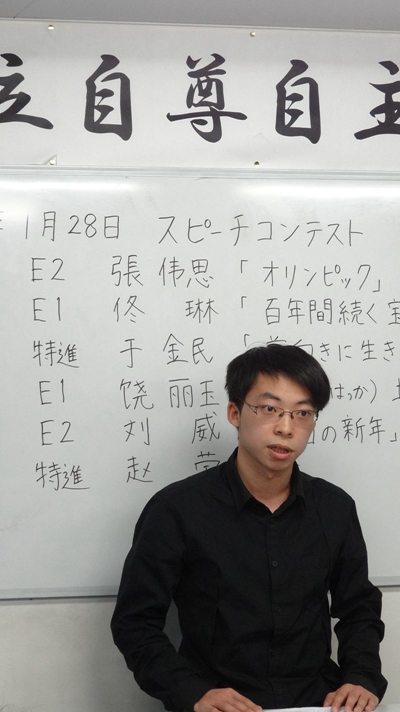 立自尊自主
1月28日 スピーチコンテスト
E2 張 伟思 「オリンピック」
E1 佟 琳 「百年間続く宝
特進 于 金民 「前向きに生き
E1 饶 丽玉 はっか)
E2 刘 威 の新年」
特進 赵